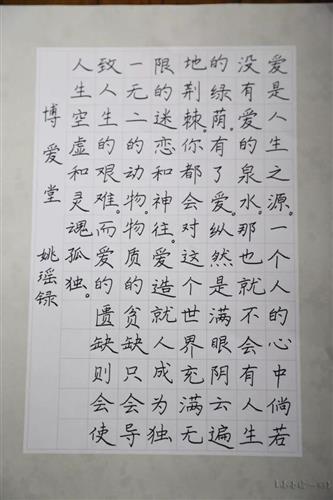 爱是人生之源。一个人的心中倘若
没有爱的泉水。那也就不会有人生
的绿荫。有了爱。纵然是满眼阴云遍
地荆棘。你都会对这个世界充满无
限的迷恋和神往。爱造就人成为独
一无二的动物。物质的贫缺只会导
致人生的艰难。而爱的匮缺则会使
人生空虚和灵魂孤独。
博爱堂 姚瑶录